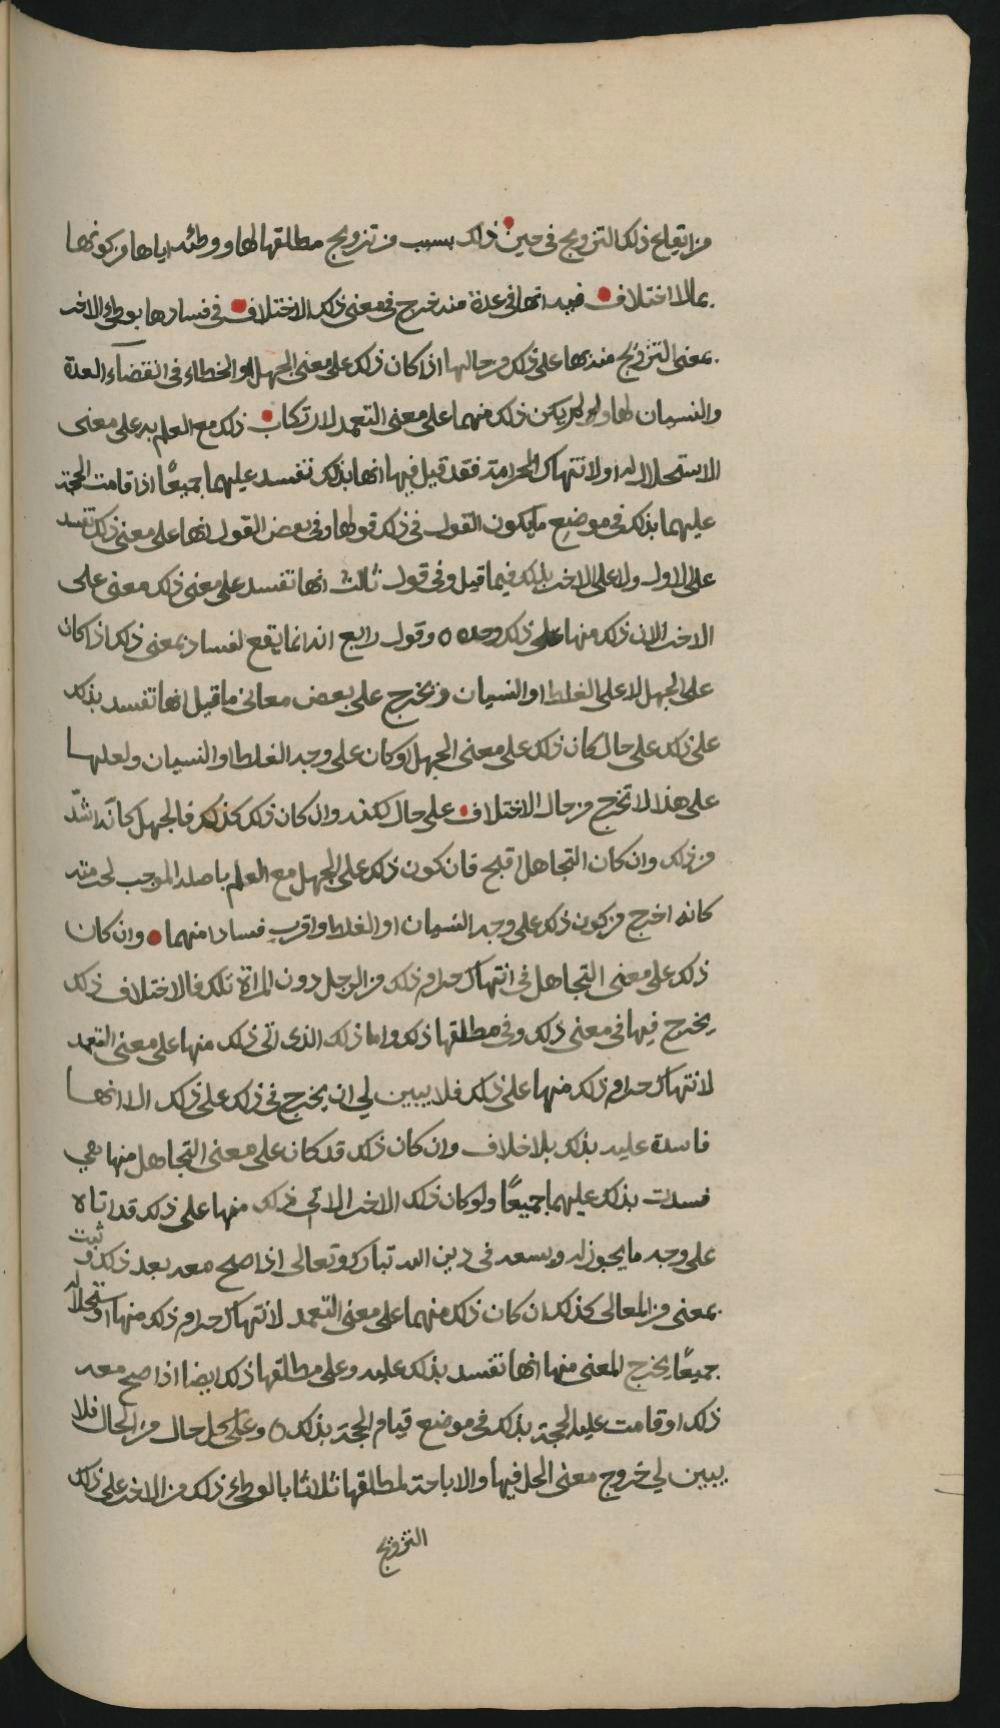 من ايقاع ذلك التزويج في حين ذلك بسبب من تزويج مطلقها لها ووطئه اياها من كونها
بما لا اختلاف فيه انها في عدة منه خرج في معنى ذلك الاختلاف في فسادها بوطى الاخر
بمعنى التزويج منه بها على ذلك من حالها اذا كان ذلك على معنى الجهل او الخطاء في انقضآء العدة
والنسيان لها ولو لم يكن ذلك منهما على معنى التعمد لارتكاب ذلك مع العلم به على معنى
الاستحلال له او لانتهاك الحرامة فقد قيل فيها انها بذلك تفسد عليهما جميعًا اذا قامت الحجة
عليهما بذلك في موضع ما يكون القول في ذلك قولها وفي بعض القول انها على معنى ذلك تفسد
على الاول ولا على الاخر بذلك فيما قيل وفي قول ثالث انها تفسد على معنى ذلك معنى على
الاخر الان ذلك منها على ذلك وحده ٥ وقول رابع انه انما يقع لفساد بمعنى ذلك اذا كان
على الجهل لا على الغلط او النسيان ويخرج على بعض معاني ما قيل انها تفسد بذلك
على ذلك على حال كان ذلك على معنى الجهل او كان على وجه الغلط او النسيان ولعلها
على هذا لا تخرج من حال الاختلاف على حال لكنه وان كان ذلك كذلك فالجهل كانه اشدّ
من ذلك وان كان التجاهل اقبح فان كون ذلك على الجهل مع العلم باصله الموجب لحرمته
كانه اخرج من كون ذلك على وجه النسيان او الغلط واقرب فسادا منهما وان كان
ذلك على معنى التجاهل في انتهاك حرام ذلك من الرجل دون المراة تلك فالاختلاف ذلك
يخرج فيها في معنى ذلك وفي مطلقها ذلك واما ذلك الذي اتى ذلك منها على معنى التعمد
لانتهاك حرام ذلك منها على ذلك فلا يبين لي ان يخرج في ذلك على ذلك الا انها
فاسدة عليه بذلك بلا خلاف وان كان ذلك قد كان على معنى التجاهل منها هي
فسدت بذلك عليهما جميعًا ولو كان ذلك الاخر الاتي ذلك منها على ذلك قد اتاه
على وجه ما يجوز له ويسعه في دين الله تبارك وتعالى اذا صح معه بعد ذلك وثبت
بمعنى من المعالى كذلك ان كان ذلك منهما على معنى التعمد لانتهاك حرام ذلك منها او استحلاله
جميعًا يخرج المعنى منها انها تفسد بذلك عليه وعلى مطلقها ذلك ايضا اذا صح معه
ذلك او قامت عليه الحجة بذلك في موضع قيام الحجة بذلك ٥ وعلى كل حال من الحال فلا
يبين لي خروج معنى الحل فيها والاباحة لمطلقها ثلاثا بالوطى ذلك من الاخر على ذلك
التزويج